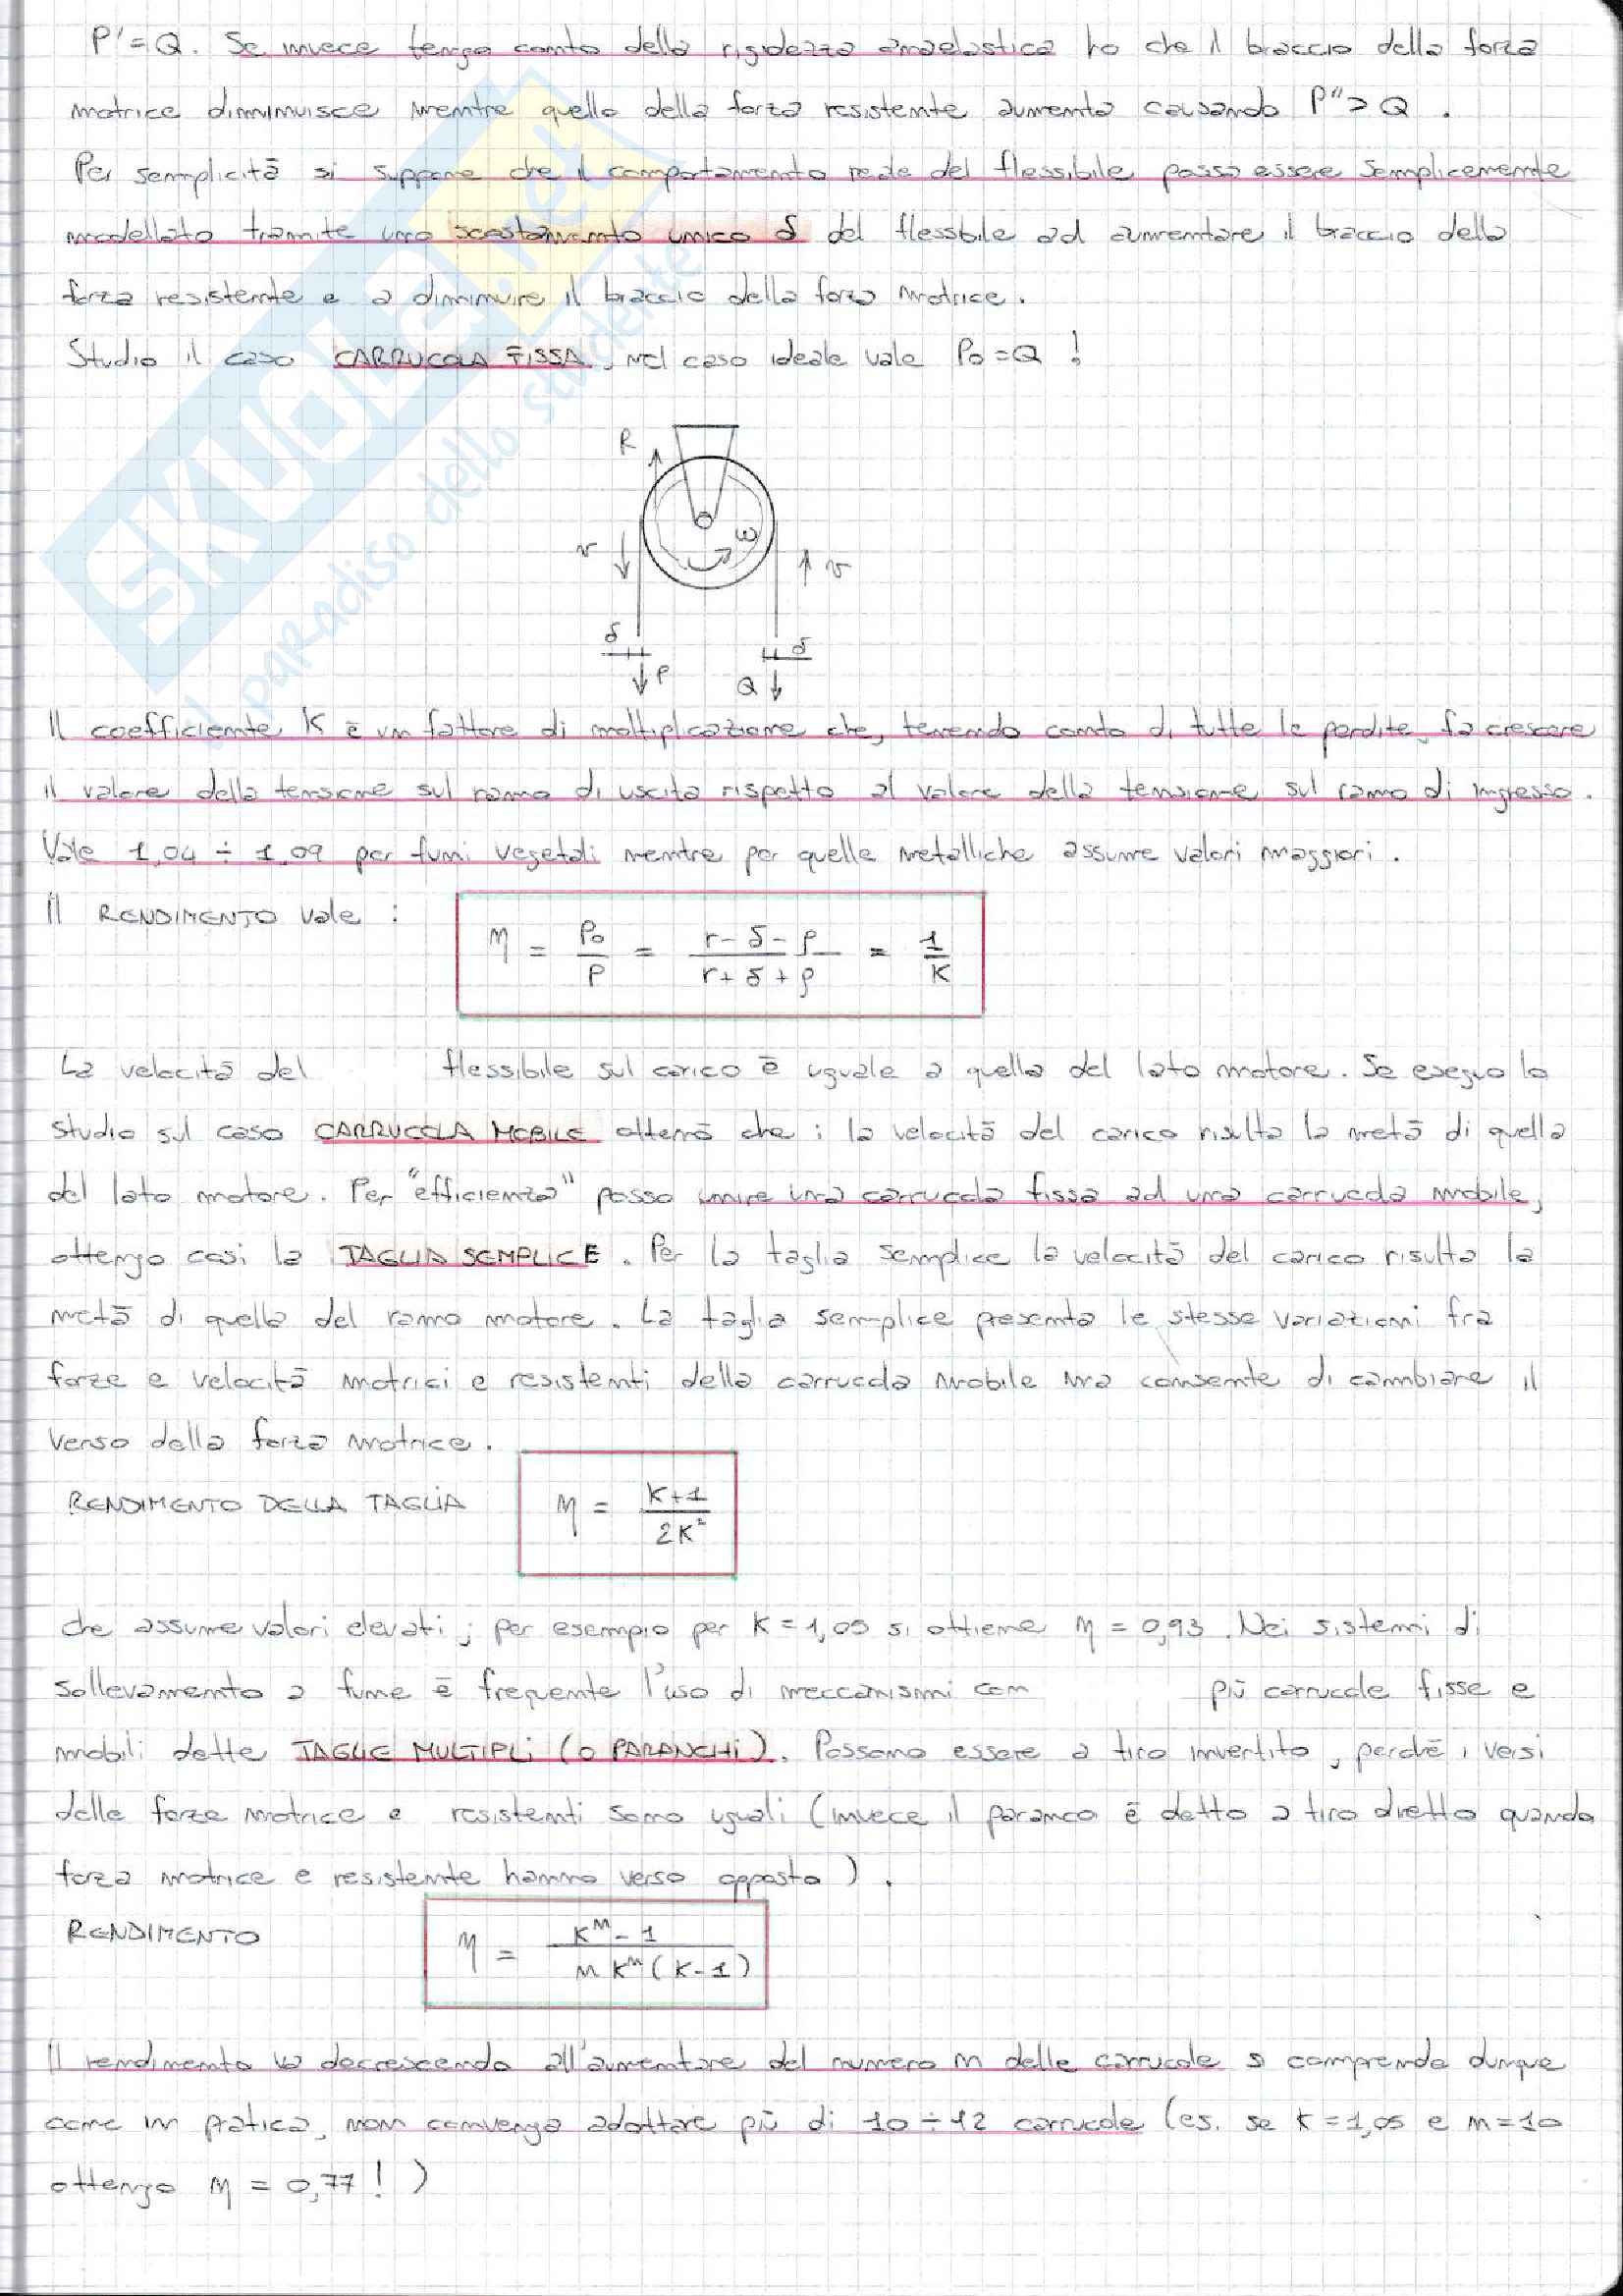 P' = Q. Se invece tengo conto della rigidezza anaelastica ho che il braccio della forza
motrice diminuisce mentre quello della forza resistente aumenta causando P'' > Q .
Per semplicità si suppone che il comportamento reale del flessibile possa essere semplicemente
modellato tramite uno scostamento unico δ del flessibile ad aumentare il braccio della
forza resistente e a diminuire il braccio della forza motrice.
Studio il caso CARRUCOLA FISSA, nel caso ideale vale P0 = Q !
R
ω
v
v
δ
δ
P
Q
Il coefficiente K è un fattore di moltiplicazione che, tenendo conto di tutte le perdite, fa crescere
il valore della tensione sul ramo di uscita rispetto al valore della tensione sul ramo di ingresso.
Vale 1,04 ÷ 1,09 per funi vegetali mentre per quelle metalliche assume valori maggiori.
Il RENDIMENTO vale :
η = P0/P = (r - δ - ρ)/(r + δ + ρ) = 1/K
La velocità del flessibile sul carico è uguale a quella del lato motore. Se eseguo lo
studio sul caso CARRUCOLA MOBILE otterrò che : la velocità del carico risulta la metà di quella
del lato motore. Per "efficienza" posso unire una carrucola fissa ad una carrucola mobile,
ottengo così la TAGLIA SEMPLICE. Per la taglia semplice la velocità del carico risulta la
metà di quella del ramo motore. La taglia semplice presenta le stesse variazioni fra
forze e velocità motrici e resistenti della carrucola mobile ma consente di cambiare il
verso della forza motrice.
RENDIMENTO DELLA TAGLIA η = (K+1)/(2K²)
che assume valori elevati ; per esempio per K = 1,05 si ottiene η = 0,93. Nei sistemi di
sollevamento a fune è frequente l'uso di meccanismi con più carrucole fisse e
mobili dette TAGLIE MULTIPLI (O PARANCHI). Possono essere a tiro invertito, perché i versi
delle forze motrice e resistenti sono uguali (invece il paranco è detto a tiro diretto quando
forza motrice e resistente hanno verso opposto).
RENDIMENTO η = (K^n - 1)/(n K^n (K-1))
Il rendimento va decrescendo all'aumentare del numero n delle carrucole si comprende dunque
come in pratica, non convenga adottare più di 10 ÷ 12 carrucole (es. se K = 1,05 e n = 10
ottengo η = 0,77 ! )
SKUOLA.net
il paradiso dello studente